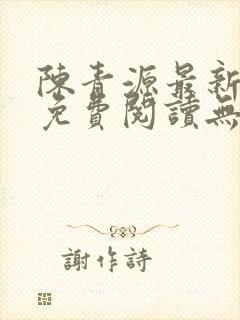 陳青源最新
免費閱讀無
謝作詩